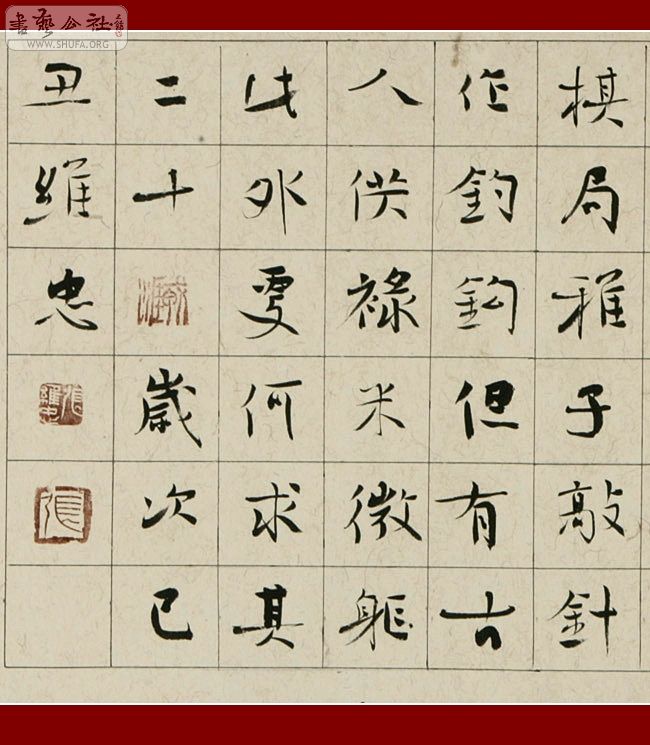 書藝公社
WWW.SHUFA.ORG
棋局稚子敲針
作釣鉤但有古
人供祿米微軀
此外更何求其
二十歲次己
丑維忠
張維忠
張